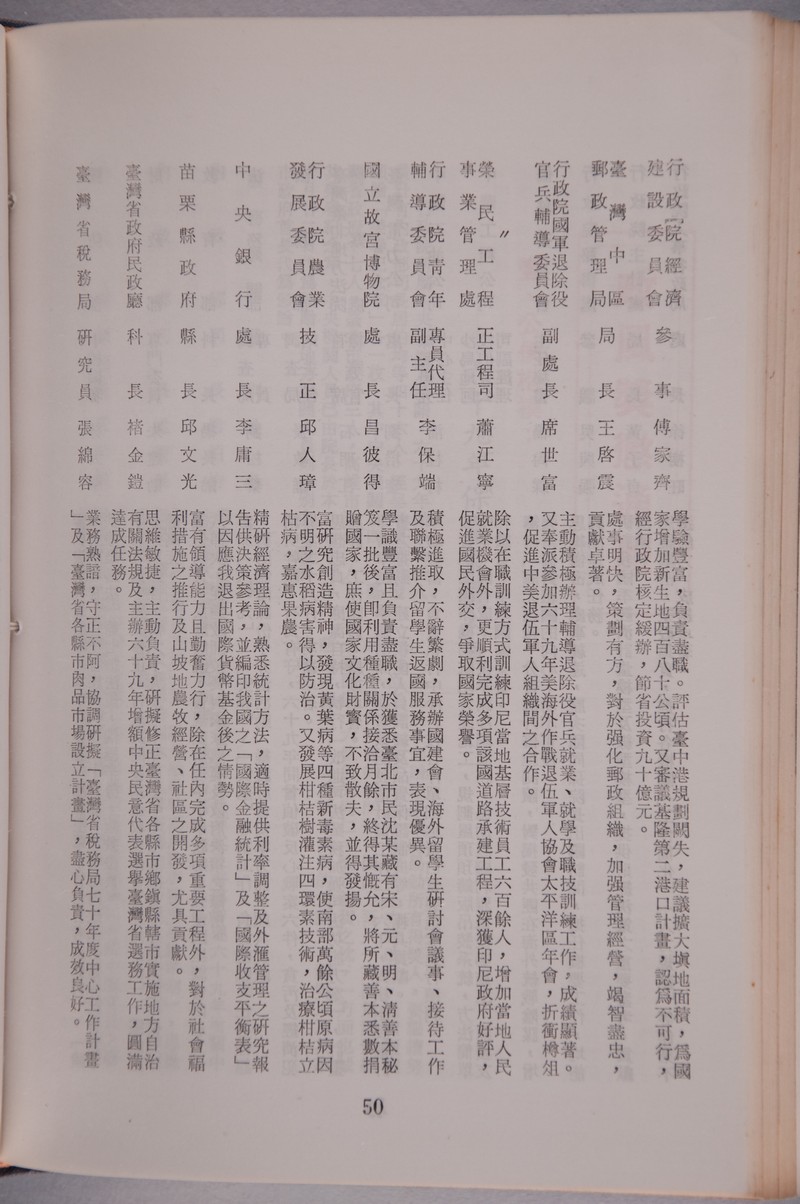 行政院經濟建設委員會 參事 傅家齊 學驗豐富，負責盡職。評估臺中港規劃闕失，建議擴大塡地面積，爲國
家增加新生地四百八十公頃。又審議基隆第二港口計畫，認爲不可行，
經行政院核定緩辦，節省投資九十億元。
臺灣中區郵政管理局 局長 王啓震 處事明快，策劃有方，對於强化郵政組織，加强管理經營，竭智盡忠，
貢獻卓著。
行政院國軍退除役官兵輔導委員會 副處長 席世富 主動積極辦理輔導退除役官兵就業、就學及職技訓練工作，成績顯著。
又奉派參加六十九年美海外作戰退伍軍人協會太平洋區年會，折衝樽俎
，促進中美退伍軍人組織間之合作。
榮民工程事業管理處 正工程司 蕭江寧 除以在職訓練方式訓練印尼當地基層技術員工六百餘人，增加當地人民
就業機會外，更順利完成多項該國道路承建工程，深獲印尼政府好評，
促進國民外交，爭取國家榮譽。
行政院靑年輔導委員會 專員代理副主任 李保端 積極進取，不辭繁劇，承辦國建會、海外留學生研討會議事、接待工作
及聯繫推介留學生返國服務事宜，表現優異。
國立故宮博物院 處長 昌彼得 學識豐富且負責盡職，於獲悉臺北市民沈某藏有宋、元、明、淸善本秘
笈一批後，卽利用種種關係接洽月餘，終得其慨允，將所藏善本悉數捐
贈國家，庶使國家文化財寶，不致散失，並得發揚。
行政院農業發展委員會 技正 邱人璋 富研究創造精神，發現黃葉病等四種新毒素病，使南部萬餘公頃原病因
不明之水稻病害得以防治。又發展柑桔樹灌注四環素技術，治療柑桔立
枯病，嘉惠果農。
中央銀行 處長 李庸三 精研經濟理論，熟悉統計方法，適時提供利率調整及外滙管理之研究報
告供決策參考，並編印我國之「國際金融統計」及「國際收支平衡表」
以因應我退出國際貨幣基金後之情勢。
苗栗縣政府 縣長 邱文光 富有領導能力且勤奮力行，除在任內完成多項重要工程外，對於社會福
利措施之推行及山坡地農牧經營、社區之開發，尤具貢獻。
臺灣省政府民政廳 科長 褚金鎧 思維敏捷，主動負責，研擬修正臺灣省各縣市鄉鎭縣轄市實施地方自治
有關法規及主辦六十九年增額中央民意代表選舉臺灣省選務工作，圓滿
達成任務。
臺灣省稅務局 研究員 張綿容 業務熟諳，守正不阿，協調研擬「臺灣省稅務局七十年度中心工作計畫
」及「臺灣省各縣市肉品市場設立計畫」，盡心負責，成效良好。
50